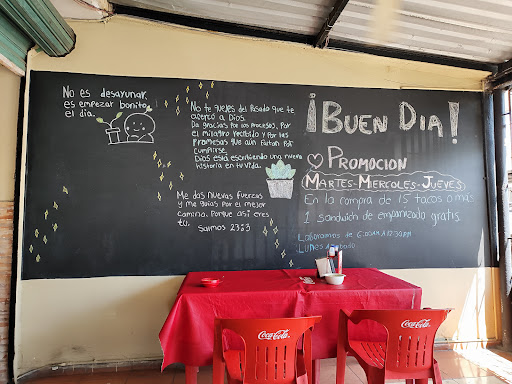 No es desayunar,
es empezar bonito
el día.
No te quejes del Pasado que te
acercó a Dios.
Da gracias por los procesos, por
el milagro recibido y por las
promesas que aún faltan por
cumplirse.
Dios está escribiendo una nueva
historia en tu vida.
Me das nuevas fuerzas
y me guías por el mejor
camino. Porque así eres
tú.
Salmos 23:3
¡BUEN DIA!
PROMOCION
MARTES-MIERCOLES-JUEVES
En la compra de 15 tacos o mas
1 sandwich de empanizado gratis
Laboramos de 6:00AM A 12:30PM
Lunes a Sabado
Coca-Cola
Coca-Cola